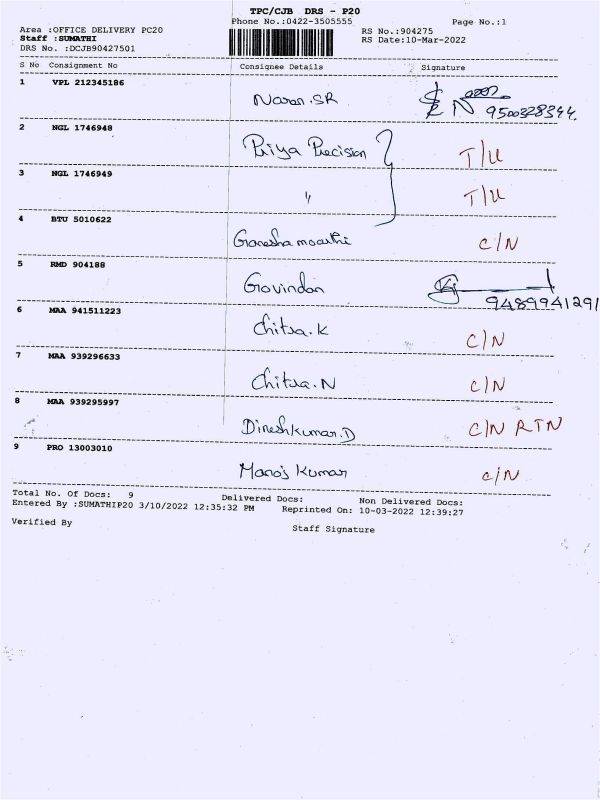 TPC/CJB DRS - P20
Phone No.:0422-3505555 Page No.:1
Area :OFFICE DELIVERY PC20
RS No.:904275
Staff :SUMATHI
RS Date:10-Mar-2022
DRS No. :DCJB90427501
S No Consignment No Consignee Details Signature
1 VPL 212345186 Naran.SR 9500328344.
2 NGL 1746948 Priya Precision T/U
3 NGL 1746949 " T/U
4 BTU 5010622 Ganesha moorthi C/N
5 RMD 904188 Govindan 9489941291
6 MAA 941511223 Chitra.K C/N
7 MAA 939296633 Chitra.N C/N
8 MAA 939295997 Dineshkumar.D C/N RTN
9 PRO 13003010 Manoj Kumar C/N
Total No. Of Docs: 9 Delivered Docs: Non Delivered Docs:
Entered By :SUMATHIP20 3/10/2022 12:35:32 PM Reprinted On: 10-03-2022 12:39:27
Verified By Staff Signature